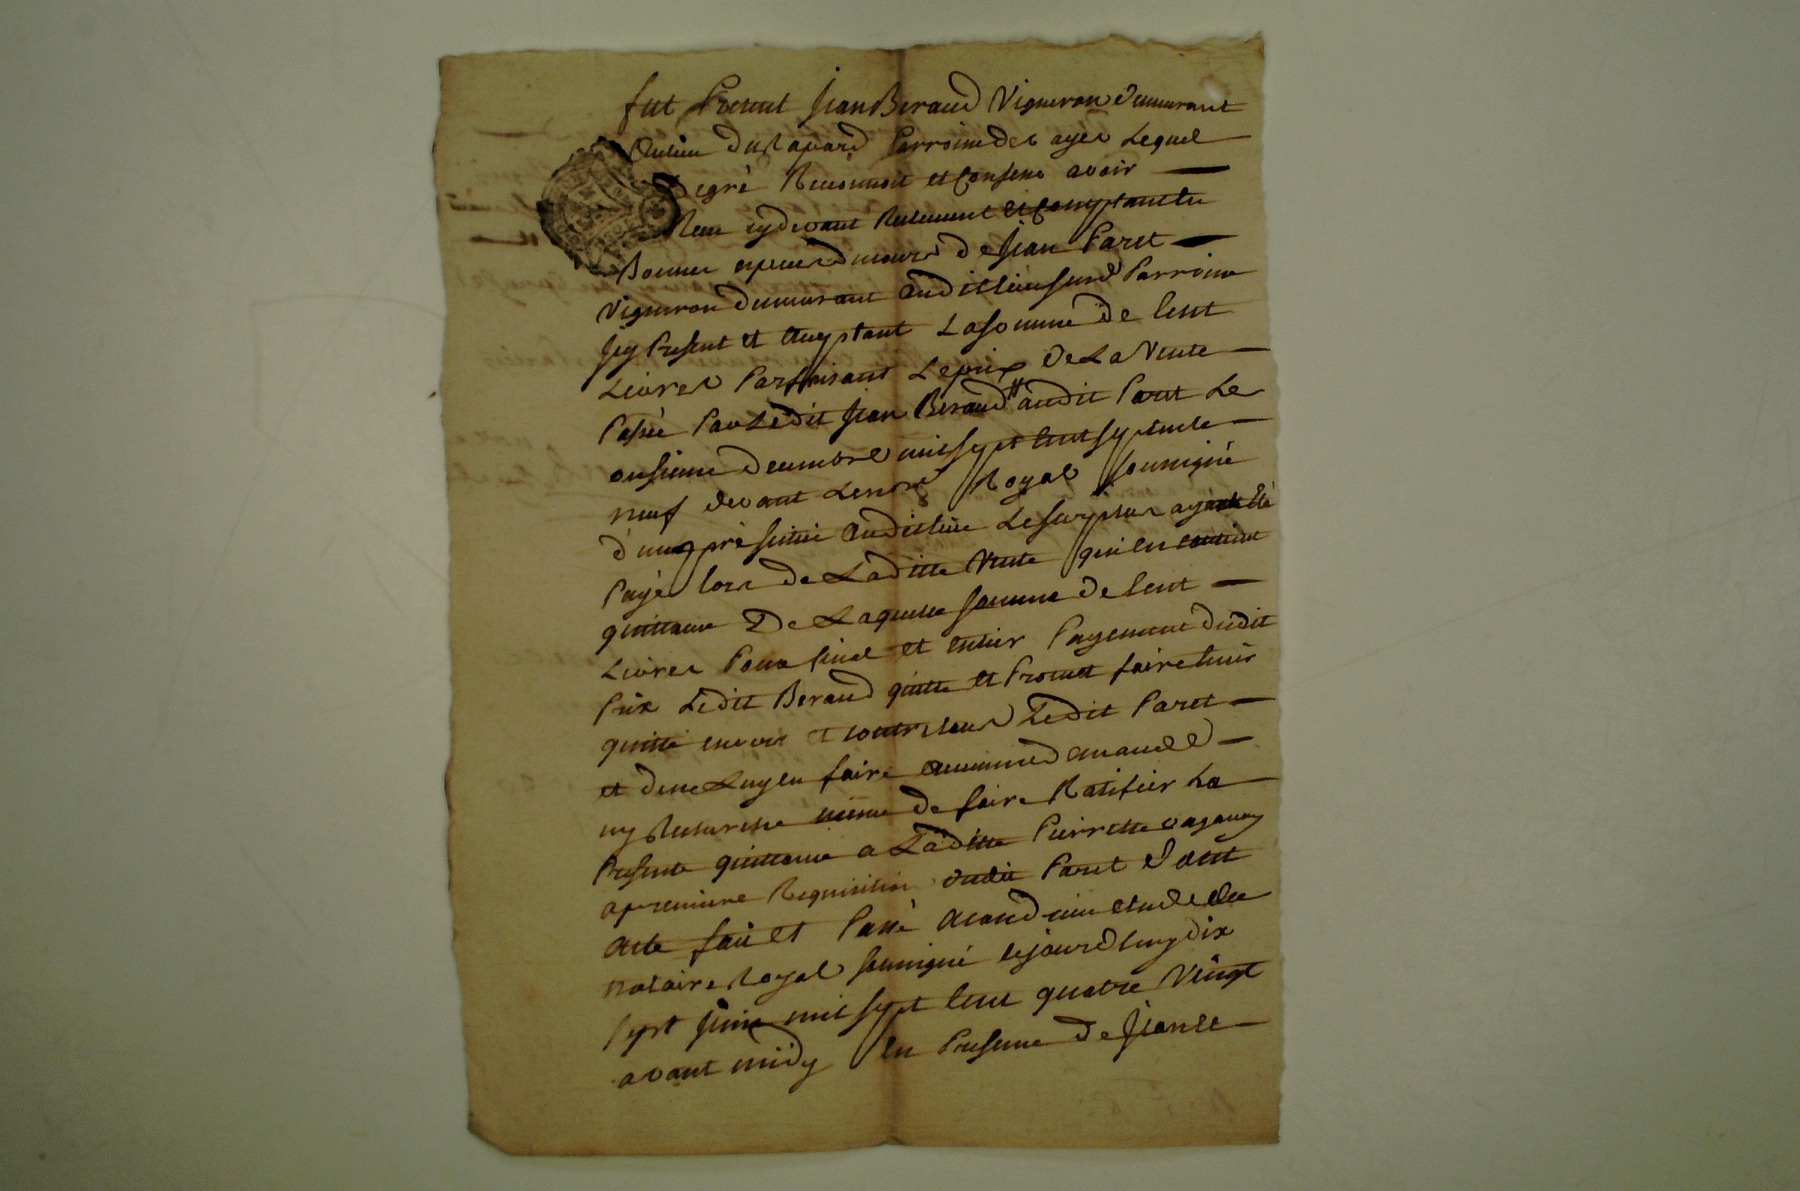 fut Present Jean Beraud Vigneron demeurant
Parroisse des ayes Lequel
degré Reconnoit et Confesse avoir
Receu cydevant Reelement et Comptant en
Bonnes especes de Jean Paret
Vigneron demeurant audit lieu Parroisse
jcy Present et acceptant La somme de Cent
Livres Parfaisant Le prix De La Vente
Passée Par Ledit Jean Beraud audit Paret Le
onsieme decembre mil sept Cent septente
neuf devant Le nore Royal soussigné
Le surplus ayant Eté
Payé lors de Laditte Vente qui en contient
quittance De Laquelle somme de Cent
Livres Pour final et Entier Payement dudit
Prix Ledit Beraud quitte et Promet faire tenir
quitte envers et contre tous Ledit Paret
et de ne Luy en faire demande
ny Recherche meme de faire Ratifier La
Presente quittance a Laditte Pierrette
a premiere Requisition dudit Paret Dont
acte fait et Passé a etude du
notaire Royal soussigné cejourdhuy dix
sept juin mil sept Cent quatre Vingt
avant midy En Presence de